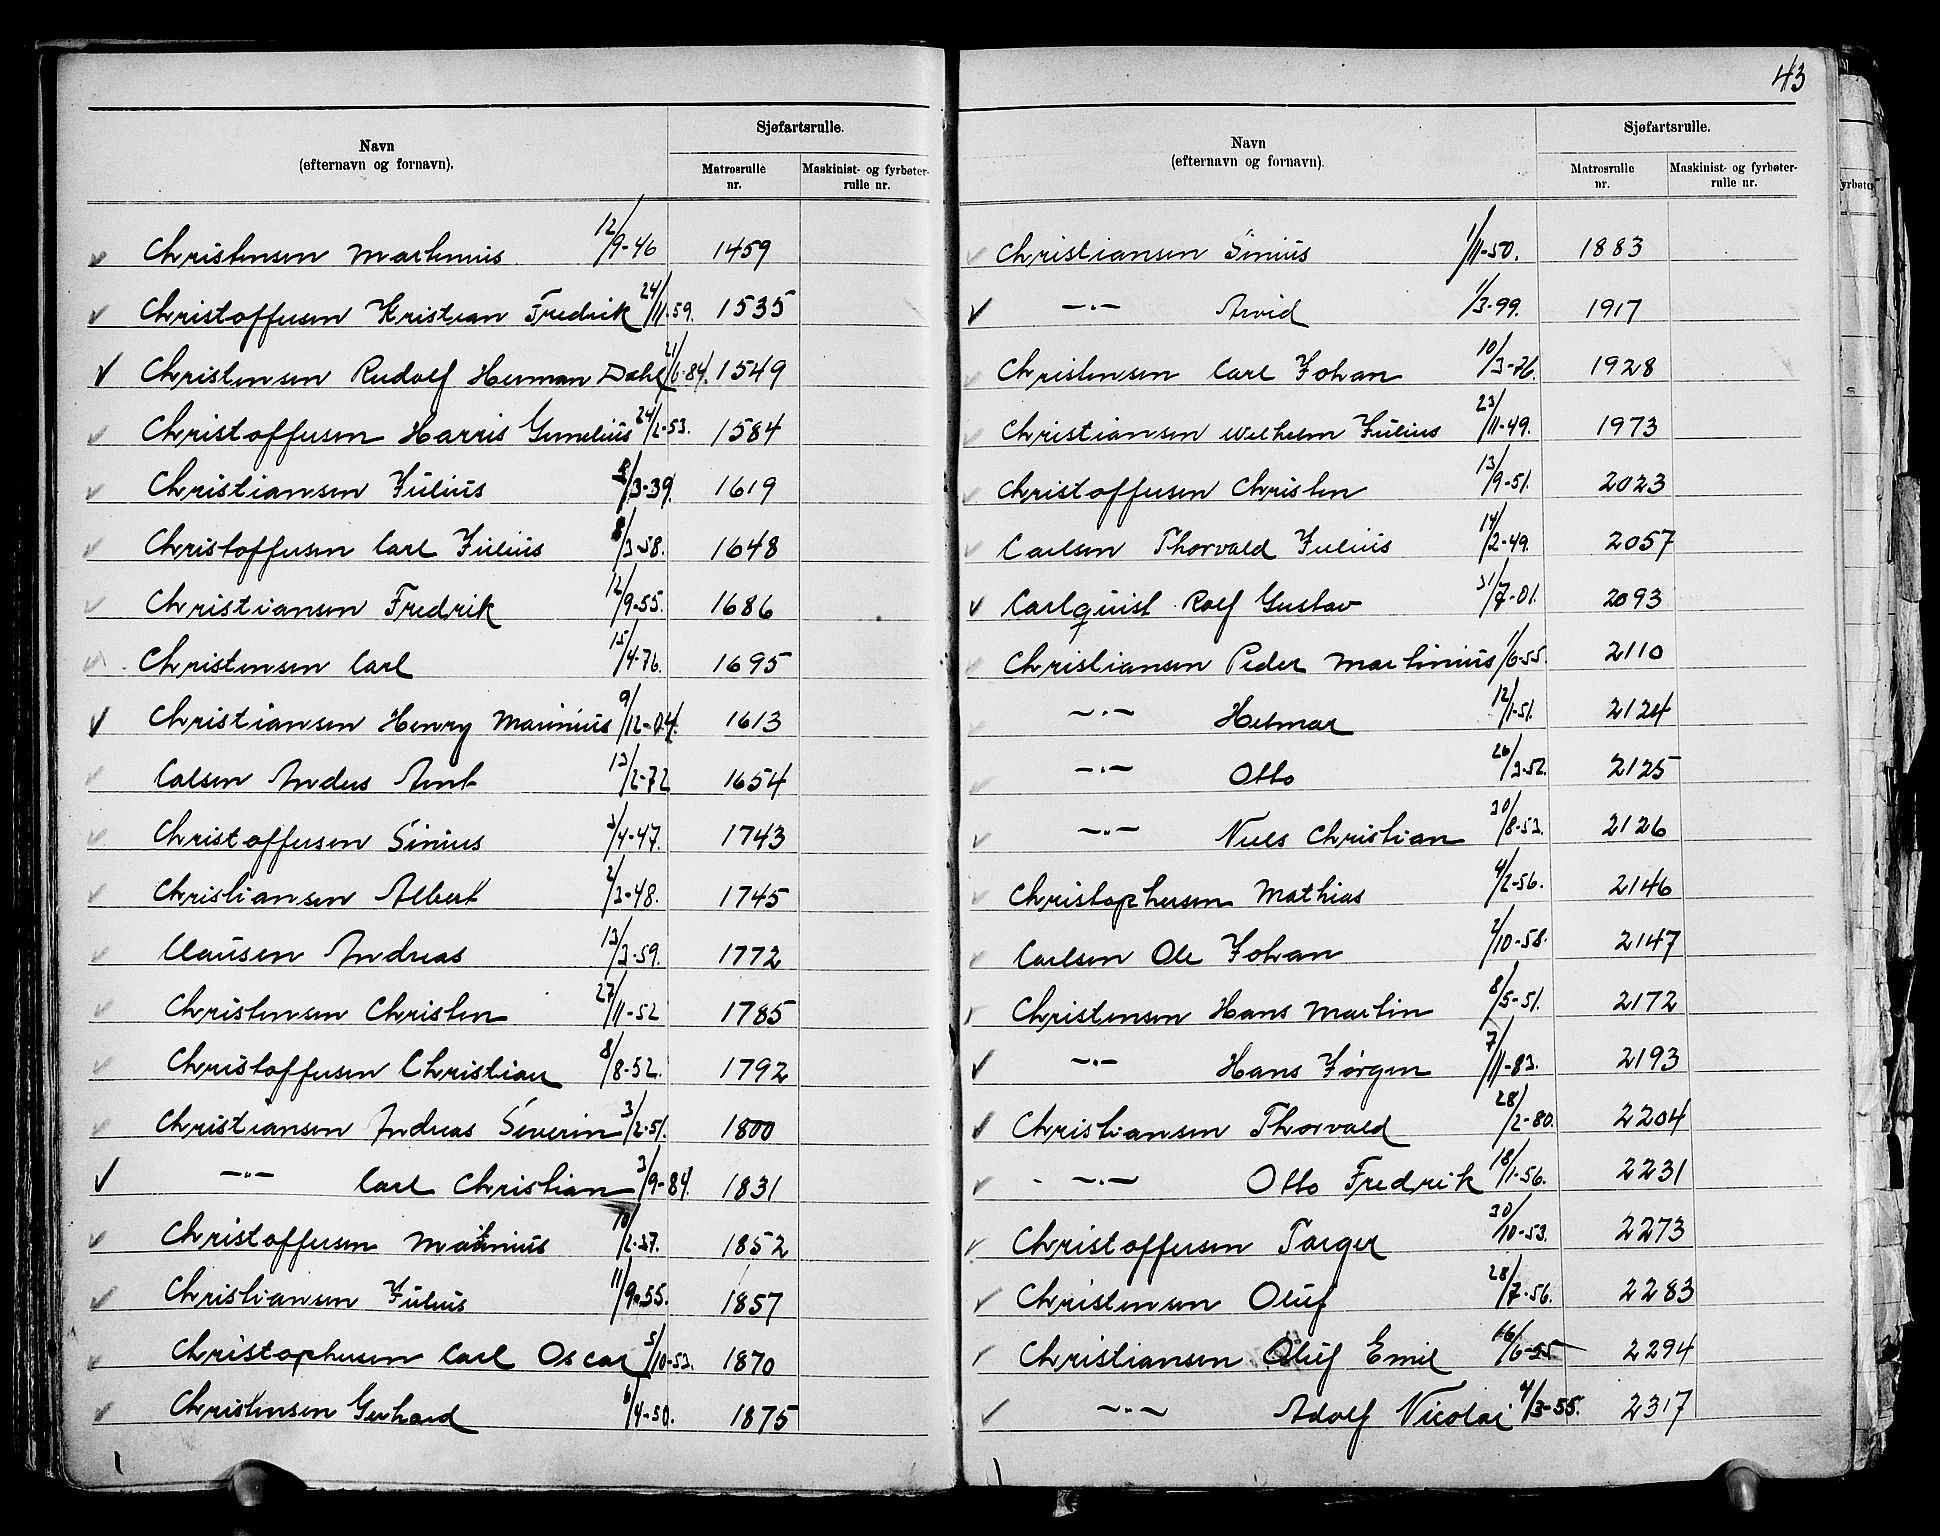 43
Navn
(efternavn og fornavn).
Sjøfartsrulle.
Matrosrulle nr.
Maskinist- og fyrbøter-rulle nr.
Christensen Martinius 12/9-46 1459
Christoffersen Kristian Fredrik 24/11-59. 1535
Christensen Rudolf Herman Dahl 21/6-84. 1549
Christoffersen Harris 24/2-53. 1584
Christiansen Julius /3-39. 1619
Christoffersen Carl Julius 8/3-58. 1648
Christiansen Fredrik 12/9-55. 1686
Christensen Carl 15/4-76. 1695
Christiansen Henry Marinius 9/12-04. 1613
Calsen Anders Arnt 13/2-72 1654
Christoffersen Sinius 3/4-47. 1743
Christiansen Albert 2/3-48. 1745
Clausen Andreas 13/3-59. 1772
Christensen Christen 27/11-52 1785
Christoffersen Christian 8/8-52. 1792
Christiansen Andreas Severin 3/2-51. 1800
—"— Carl Christian 3/9-84. 1831
Christoffersen 10/2-37. 1852
Christiansen Julius 11/9-55. 1857
Christophersen Carl Oscar 5/10-53. 1870
Christensen Gerhard 6/4-50. 1875
Navn
(efternavn og fornavn).
Sjøfartsrulle.
Matrosrulle nr.
Maskinist- og fyrbøter-rulle nr.
Christiansen Sinius 1/11-50. 1883
—"— Arvid 1/3-99. 1917
Christensen Carl Johan 10/3-76. 1928
Christiansen Wilhelm Julius 23/11-49. 1973
Christoffersen Christen 13/9-51. 2023
Carlsen Thorvald Julius 14/2-49. 2057
Carlquist Rolf Gustav 31/7-01. 2093
Christiansen Peder Martinius 1/6-55. 2110
—"— Helmar 12/1-51. 2124
—"— Otto 26/3-52. 2125
—"— Niels Christian 30/8-53. 2126
Christophersen Mathias 4/2-56. 2146
Carlsen Ole Johan 2/10-58. 2147
Christensen Hans Martin 8/5-51. 2172
—"— Hans Jørgen 7/11-83. 2193
Christiansen Thorvald 28/2-80. 2204
—"— Otto Fredrik 18/1-56. 2231
Christoffersen Torger 30/10-53. 2273
Christensen Oluf 28/7-56. 2283
Christiansen Oluf Emil 16/6-55 2294
—"— Adolf Nicolai 4/3-55. 2317